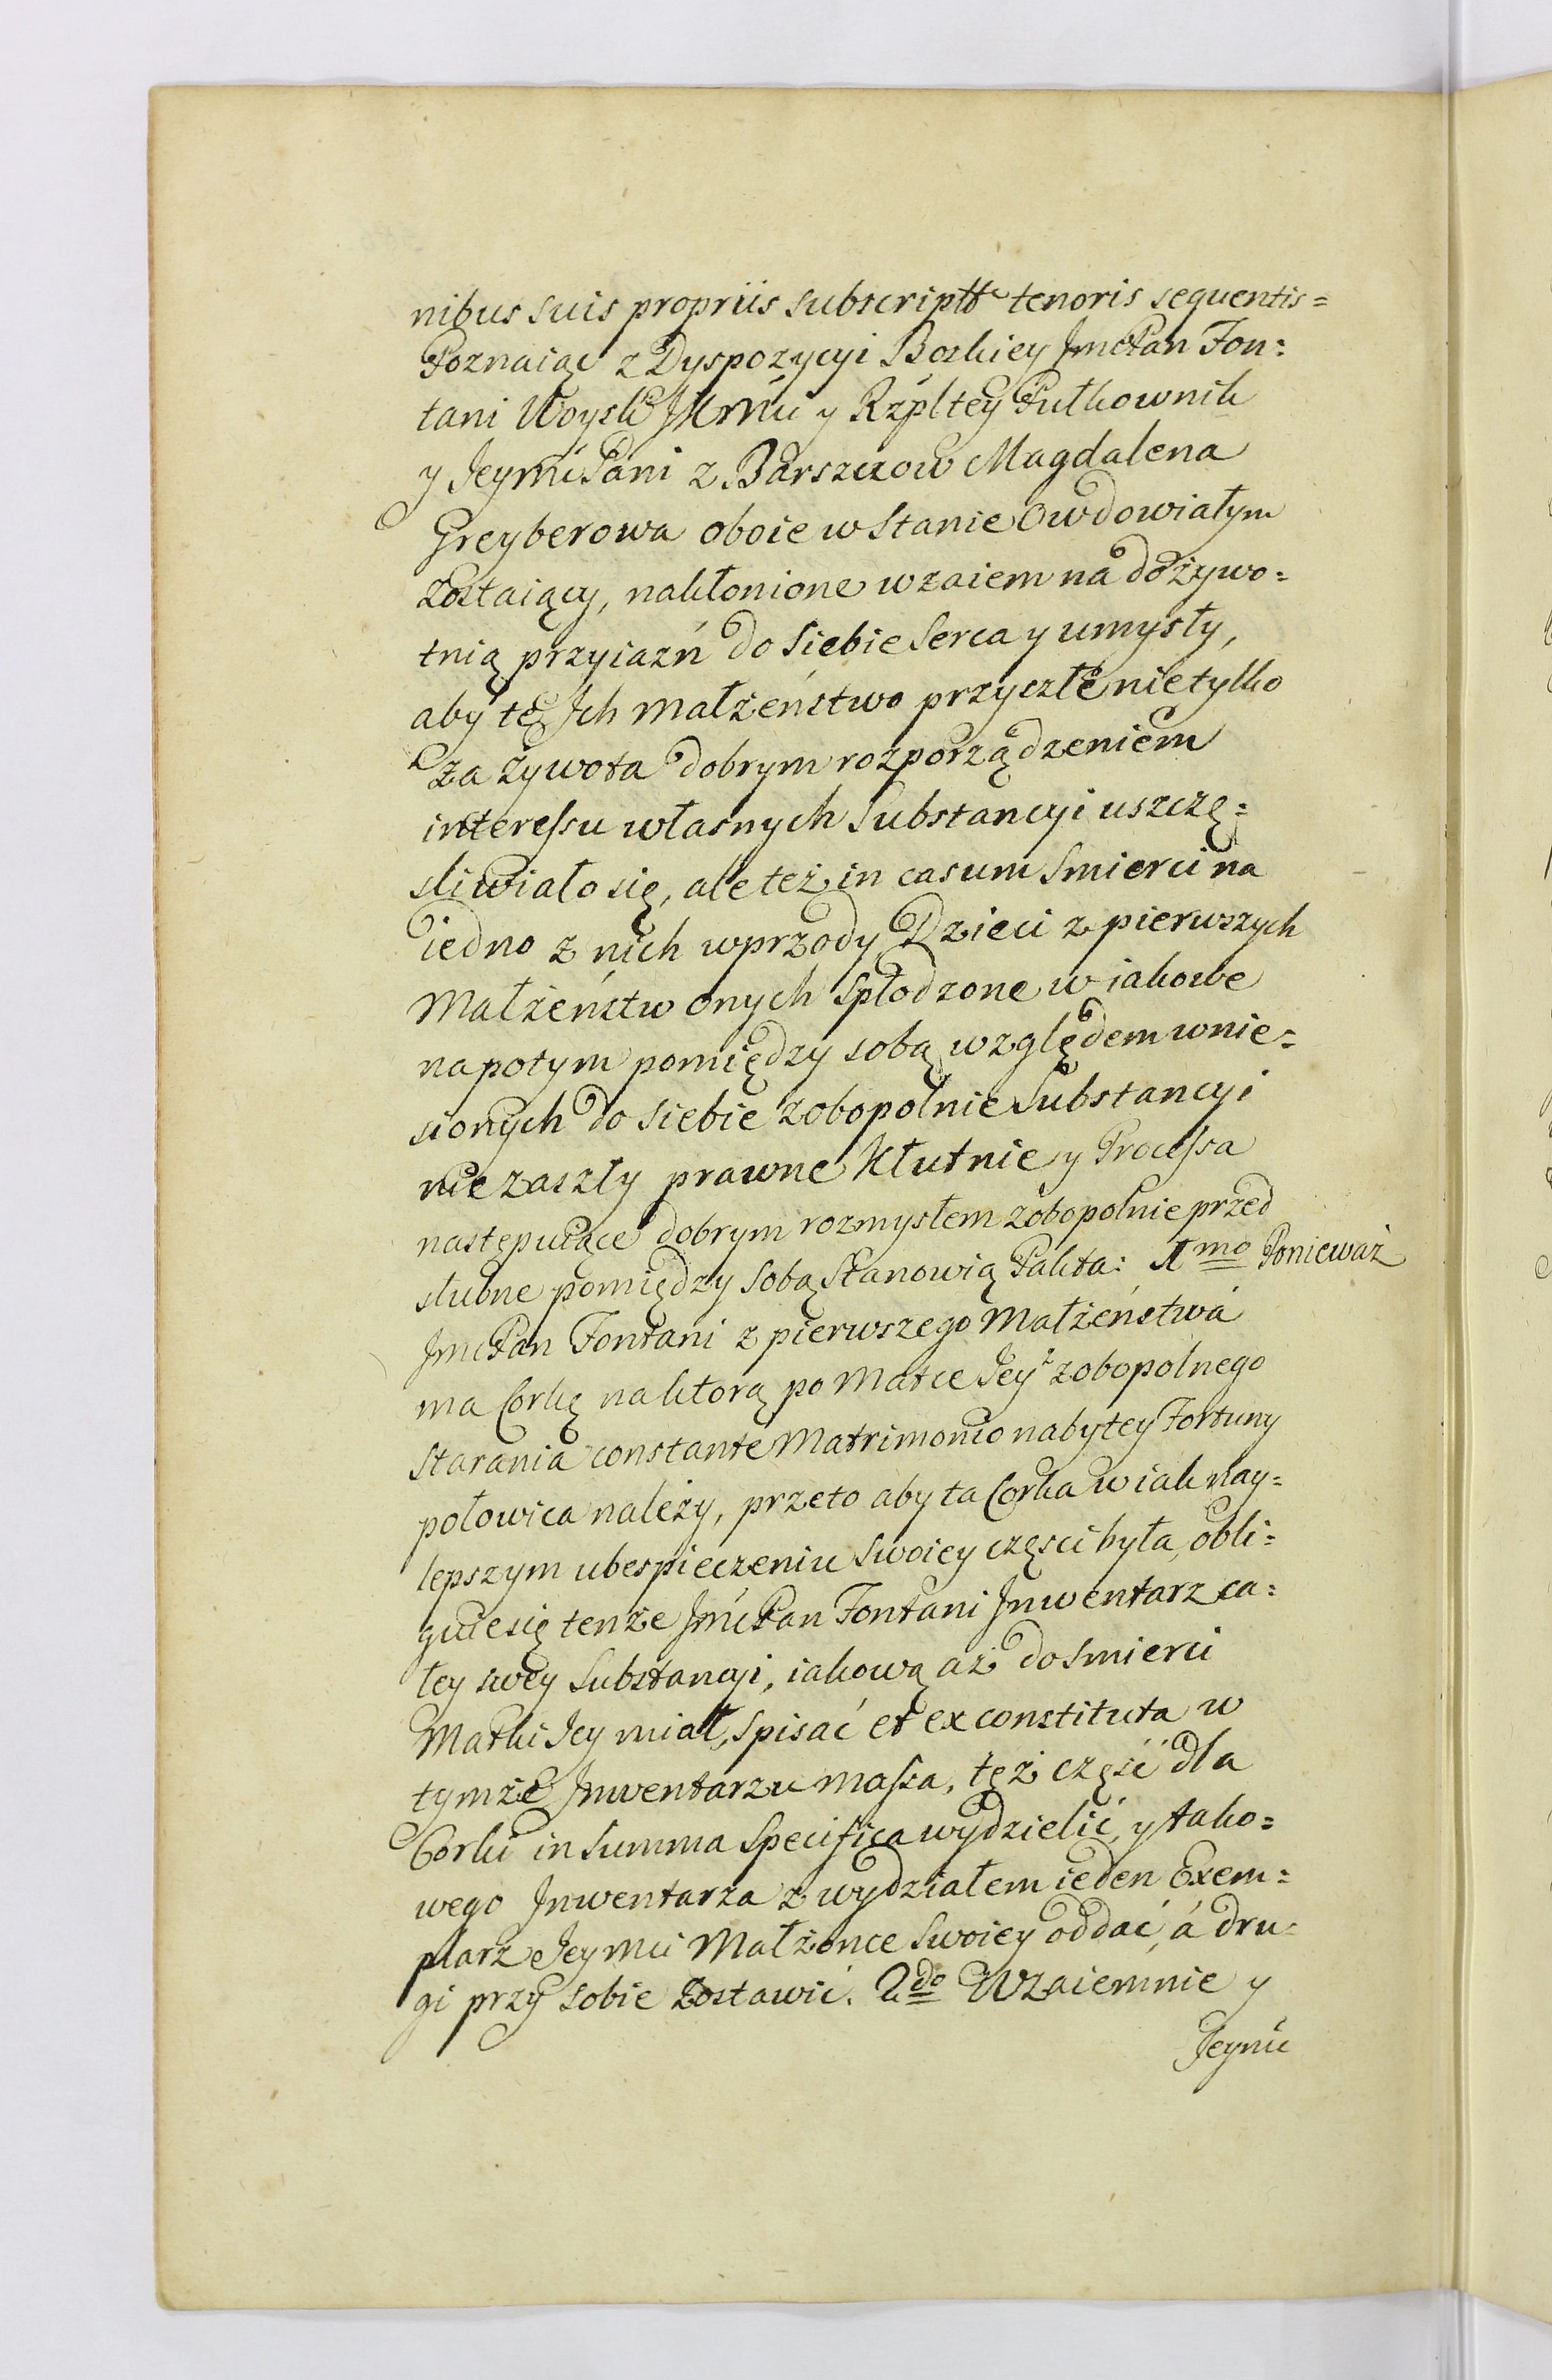 nibus suis propriis subscriptt tenoris sequentis=
Poznaiąc z Dyspozycyi Boskiey Jmć Pan Fon=
tani Woysk JKMći y Rzpltey Pułkownik
y Jeymć Pani z Barszczow Magdalena
Greyberowa oboie w stanie Owdowiałym
zostaiący, nakłonione wzaiem na dożywo=
tnią przyiazń do siebie serca y umysły,
aby te Jch małżeństwo przyszłe nie tylko
za żywota dobrym rozporządzeniem
interessu własnych Substancyi uszczę=
sliwiało się, ale też in casum smierci na
iedno z nich wprzody Dzieci z pierwszych
Małżeństw onych spłodzone w iakowe
na potym pomiędzy sobą względem wnie=
sionych do siebie zobopolnie Substancyi
nie zaszły prawne kłutnie y Processa
następuiące dobrym rozmysłem zobopolnie przed
slubne pomiędzy sobą stanowią Pakta: 1mo Ponieważ
Jmć Pan Fontani z pierwszego Małżeństwa
ma Corkę na ktorą po Matce Jey z zobopolnego
starania constante Matrimonio nabytey Fortuny
połowica należy, przeto aby ta Corka w iak nay=
lepszym ubespieczeniu swoiey częsci była, obli=
guie się tenże Jmć Pan Fontani Jnwentarz ca=
łey swey Substancyi, iakową aż do smierci
Matki Jey miał, spisać et ex constituta w
tymże Jnwentarzu massa, tęż część dla
Corki in summa specifica wydzielić, y tako=
wego Jnwentarza z wydziałem ieden Exem=
plarz Jeymci Małżonce swoiey oddać, á dru=
gi przy sobie zostawić. 2do Wzaiemnie y
Jeymć